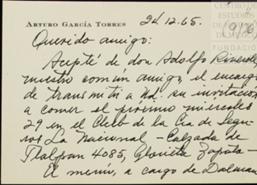 ARTURO GARCÍA TORRES
24.12.65.
Querido amigo:
Acepté de don Adolfo
nuestro común amigo, el encargo
de transmitir a Ud. su invitación
a comer el próximo miércoles
29 en el Club de la Cía de Segu-
ros La Nacional - Calzada de
Tlalpan 4085, Glorieta Zapata -
El menú, a cargo de